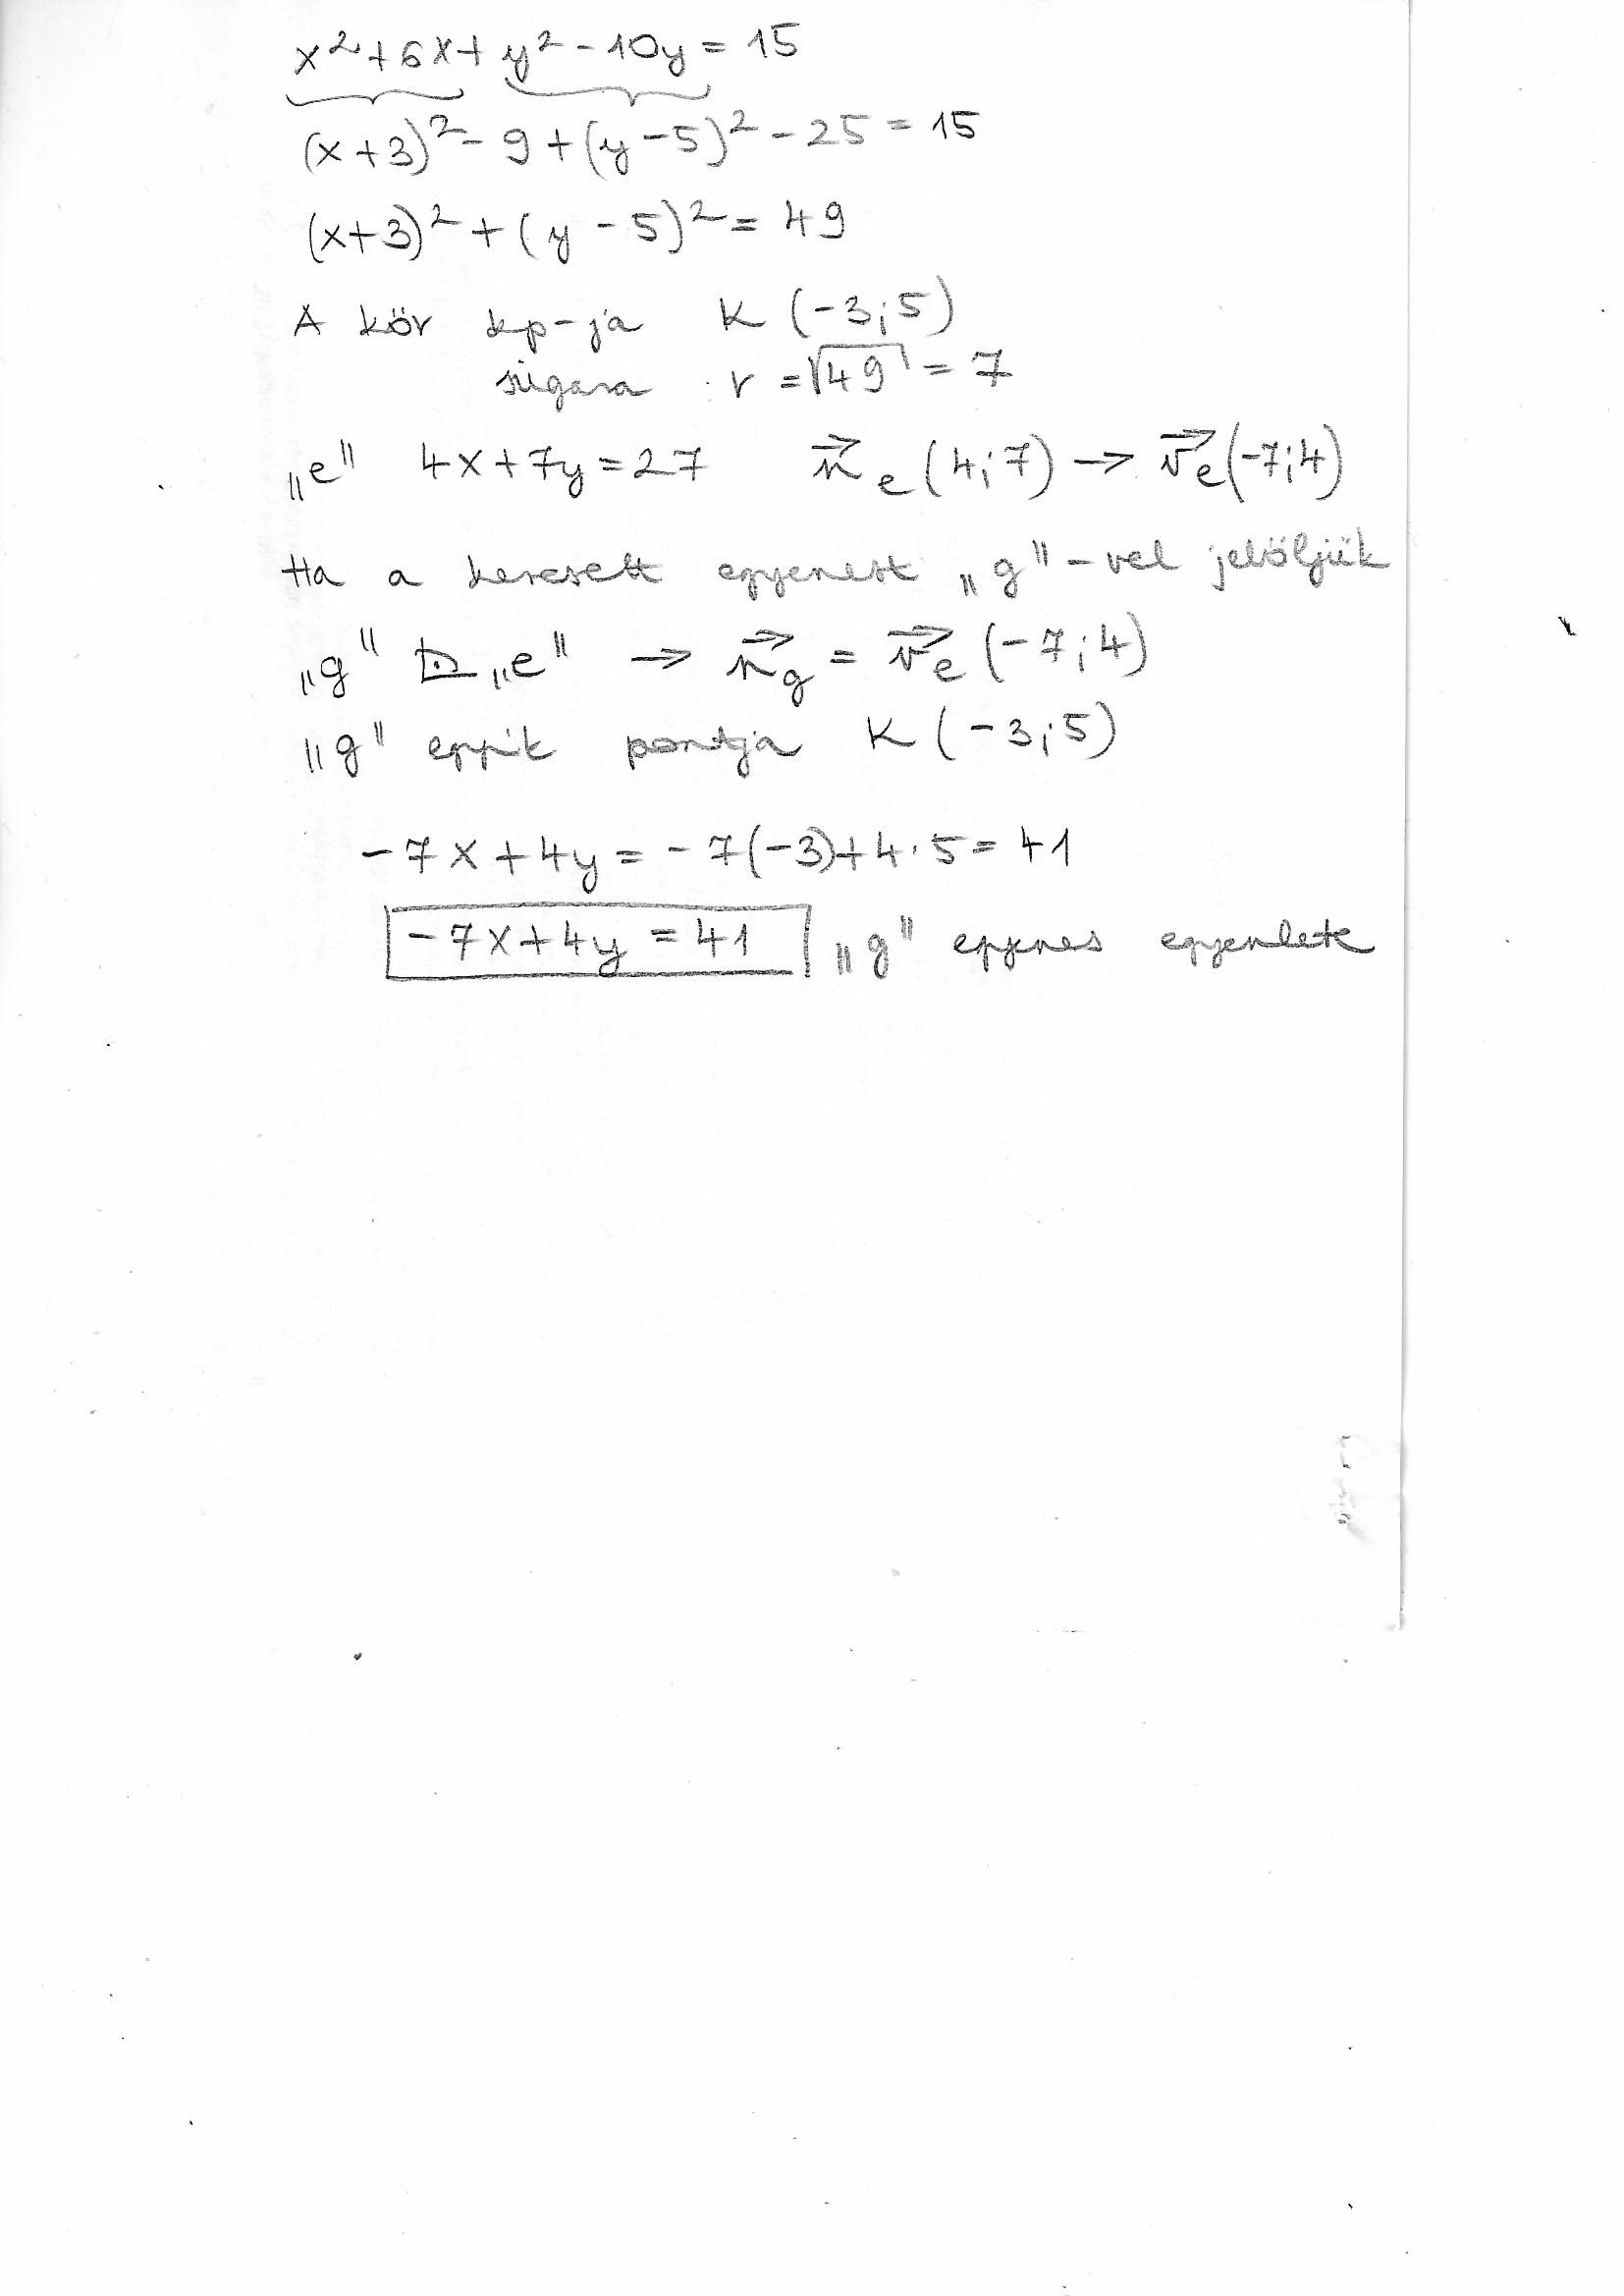 x² + 6x + y² - 10y = 15
(x+3)² - 9 + (y-5)² - 25 = 15
(x+3)² + (y-5)² = 49
A kör kp-ja K (-3;5)
sugara r = √49 = 7
„e" 4x + 7y = 27 n⃗e (4;7) → v⃗e (-7;4)
Ha a keresett egyenest „g"-vel jelöljük
„g" ⊥ „e" → n⃗g = v⃗e (-7;4)
„g" egyik pontja K (-3;5)
-7x + 4y = -7(-3) + 4·5 = 41
-7x + 4y = 41 „g" egyenes egyenlete